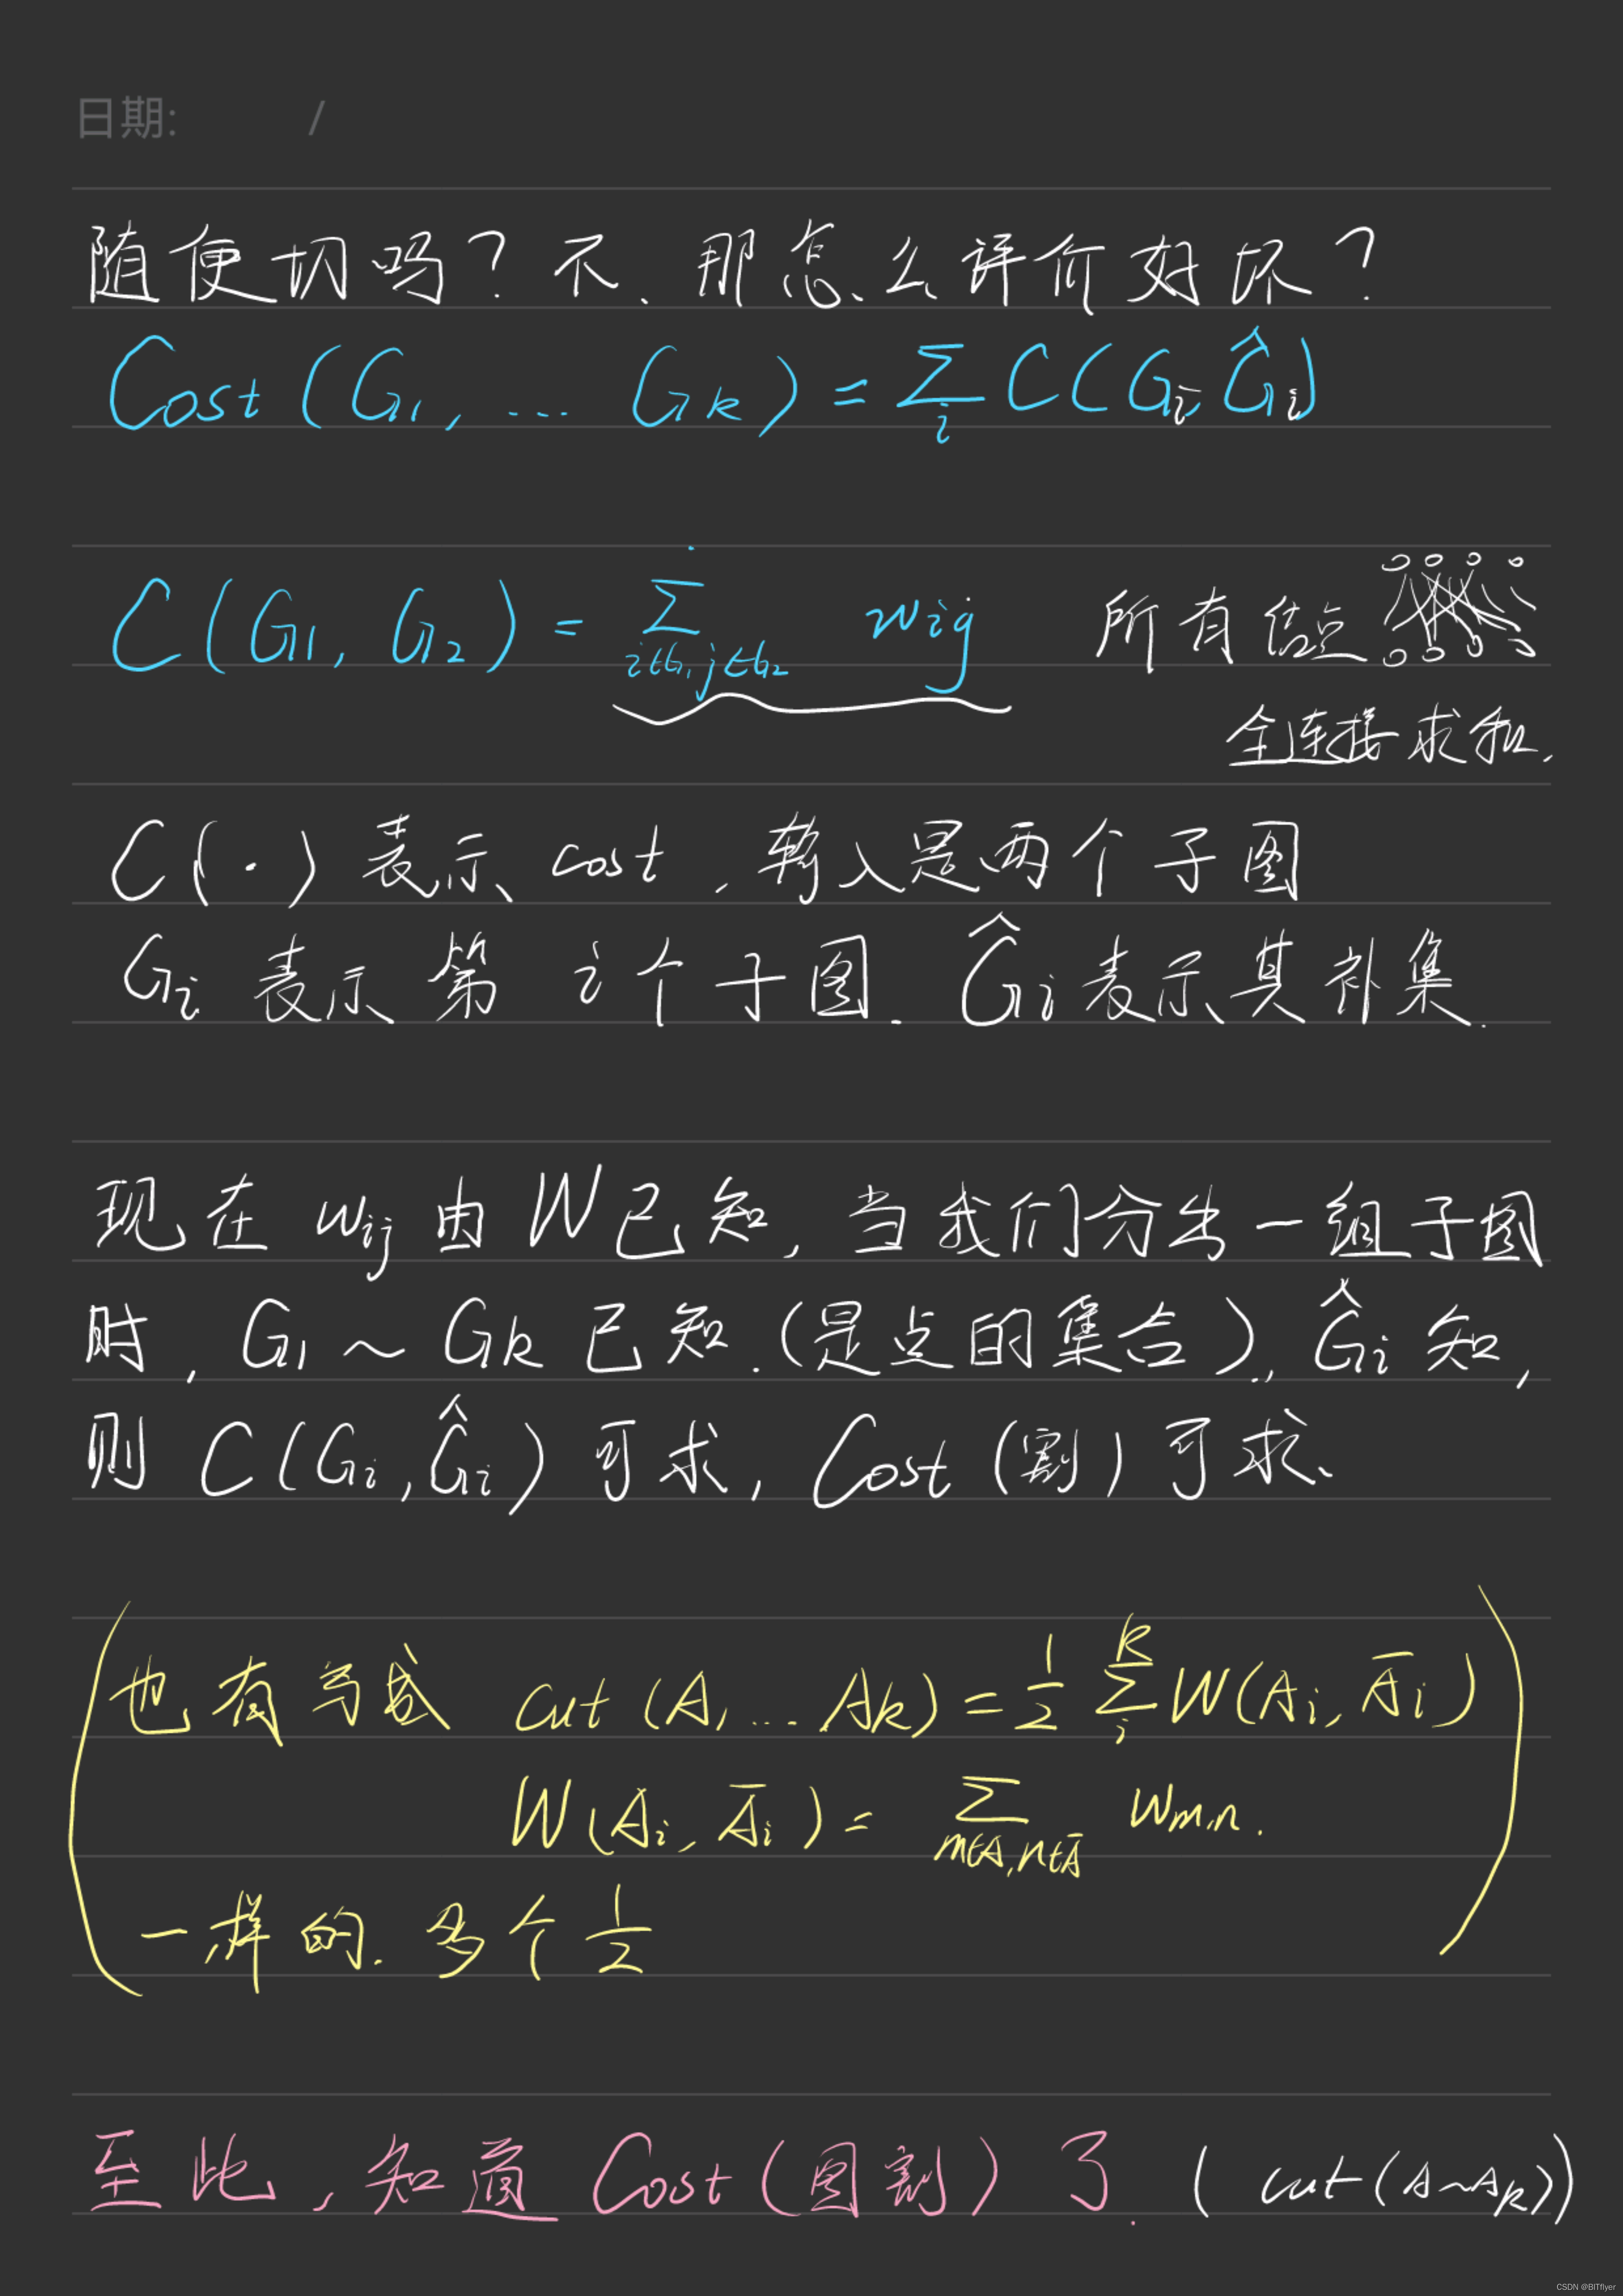 日期: /
随便切吗？不、那怎么评价好坏？
Cost (G1, ... Gk) = Σ_i C(Gi, Ĝi)
C(G1, G2) = Σ_{i∈G1, j∈G2} wij 所有
全连接求和.
C(·) 表示 cost, 输入是两个子图
Gi 表示第 i 个子图. Ĝi 表示其补集.
现在 wij 由 W 已知, 当我们分出一组子图
时, G1 ~ Gk 已知. (是点的集合), Ĝi 知,
则 C(Gi, Ĝi) 可求, Cost (割) 可求、
也有写成 cut (A1 ... Ak) = 1/2 Σ_i^k W(Ai, Āi)
W(Ai, Āi) = Σ_{m∈A, n∈Ā} wm,n.
一样的. 多个 1/2
至此, 知道 Cost (图割) 了. ( cut (A~Ak))
CSDN @BITflyer